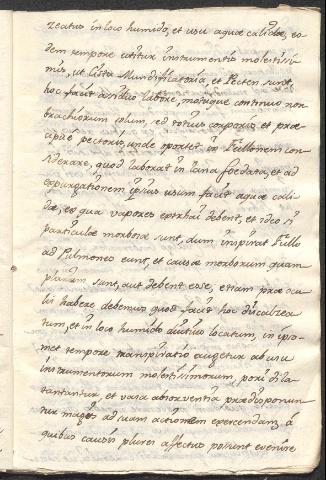 zeatus in loco humido, et usu aquae calidae, eo-
dem tempore utitur instrumentis molestissi-
mis, ut Mundificatoria, et Pecten sunt,
hoc facit assiduo labore, motuque continuo non
brachiorum solum, sed totius corporis, et prae-
cipuè pectoris, unde oportet in Fullonem con-
siderare, quod laborat in lana foedata, et ad
expurgationem ipsius usum facit aquae cali-
dae, ex qua vapores extrahi debent, et ideo si
particulae morbosae sunt, dum inspirat Fullo
ad Pulmones eunt, et causae morborum quam-
plurium sunt, aut debent esse, etiam prae ocu-
lis habere debemus quod facit hoc discalzea-
tum, et in loco humido diutius locatum, in ipso-
met tempore transpiratio augetur ab usu
instrumentorum molestissimorum, pori dila-
tantantur, et vasa absorventia praedisponun-
tur magis ad suam actionem exercendam, à
quibus causis plures affectus possunt evenire